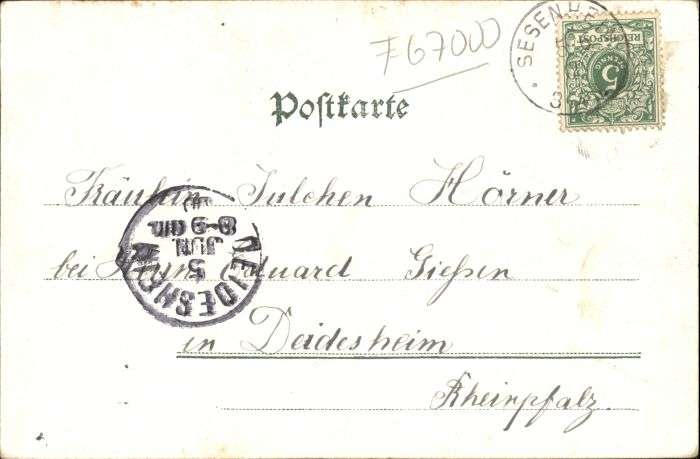 F67000
SESENH
REICHSPOST
5
PFENNIG
3
Postkarte
Fräulein Julchen Hörner
bei Herrn Eduard Gießen
in Deidesheim
Rheinpfalz.
DEIDESHEIM
5
JUN.
8-9